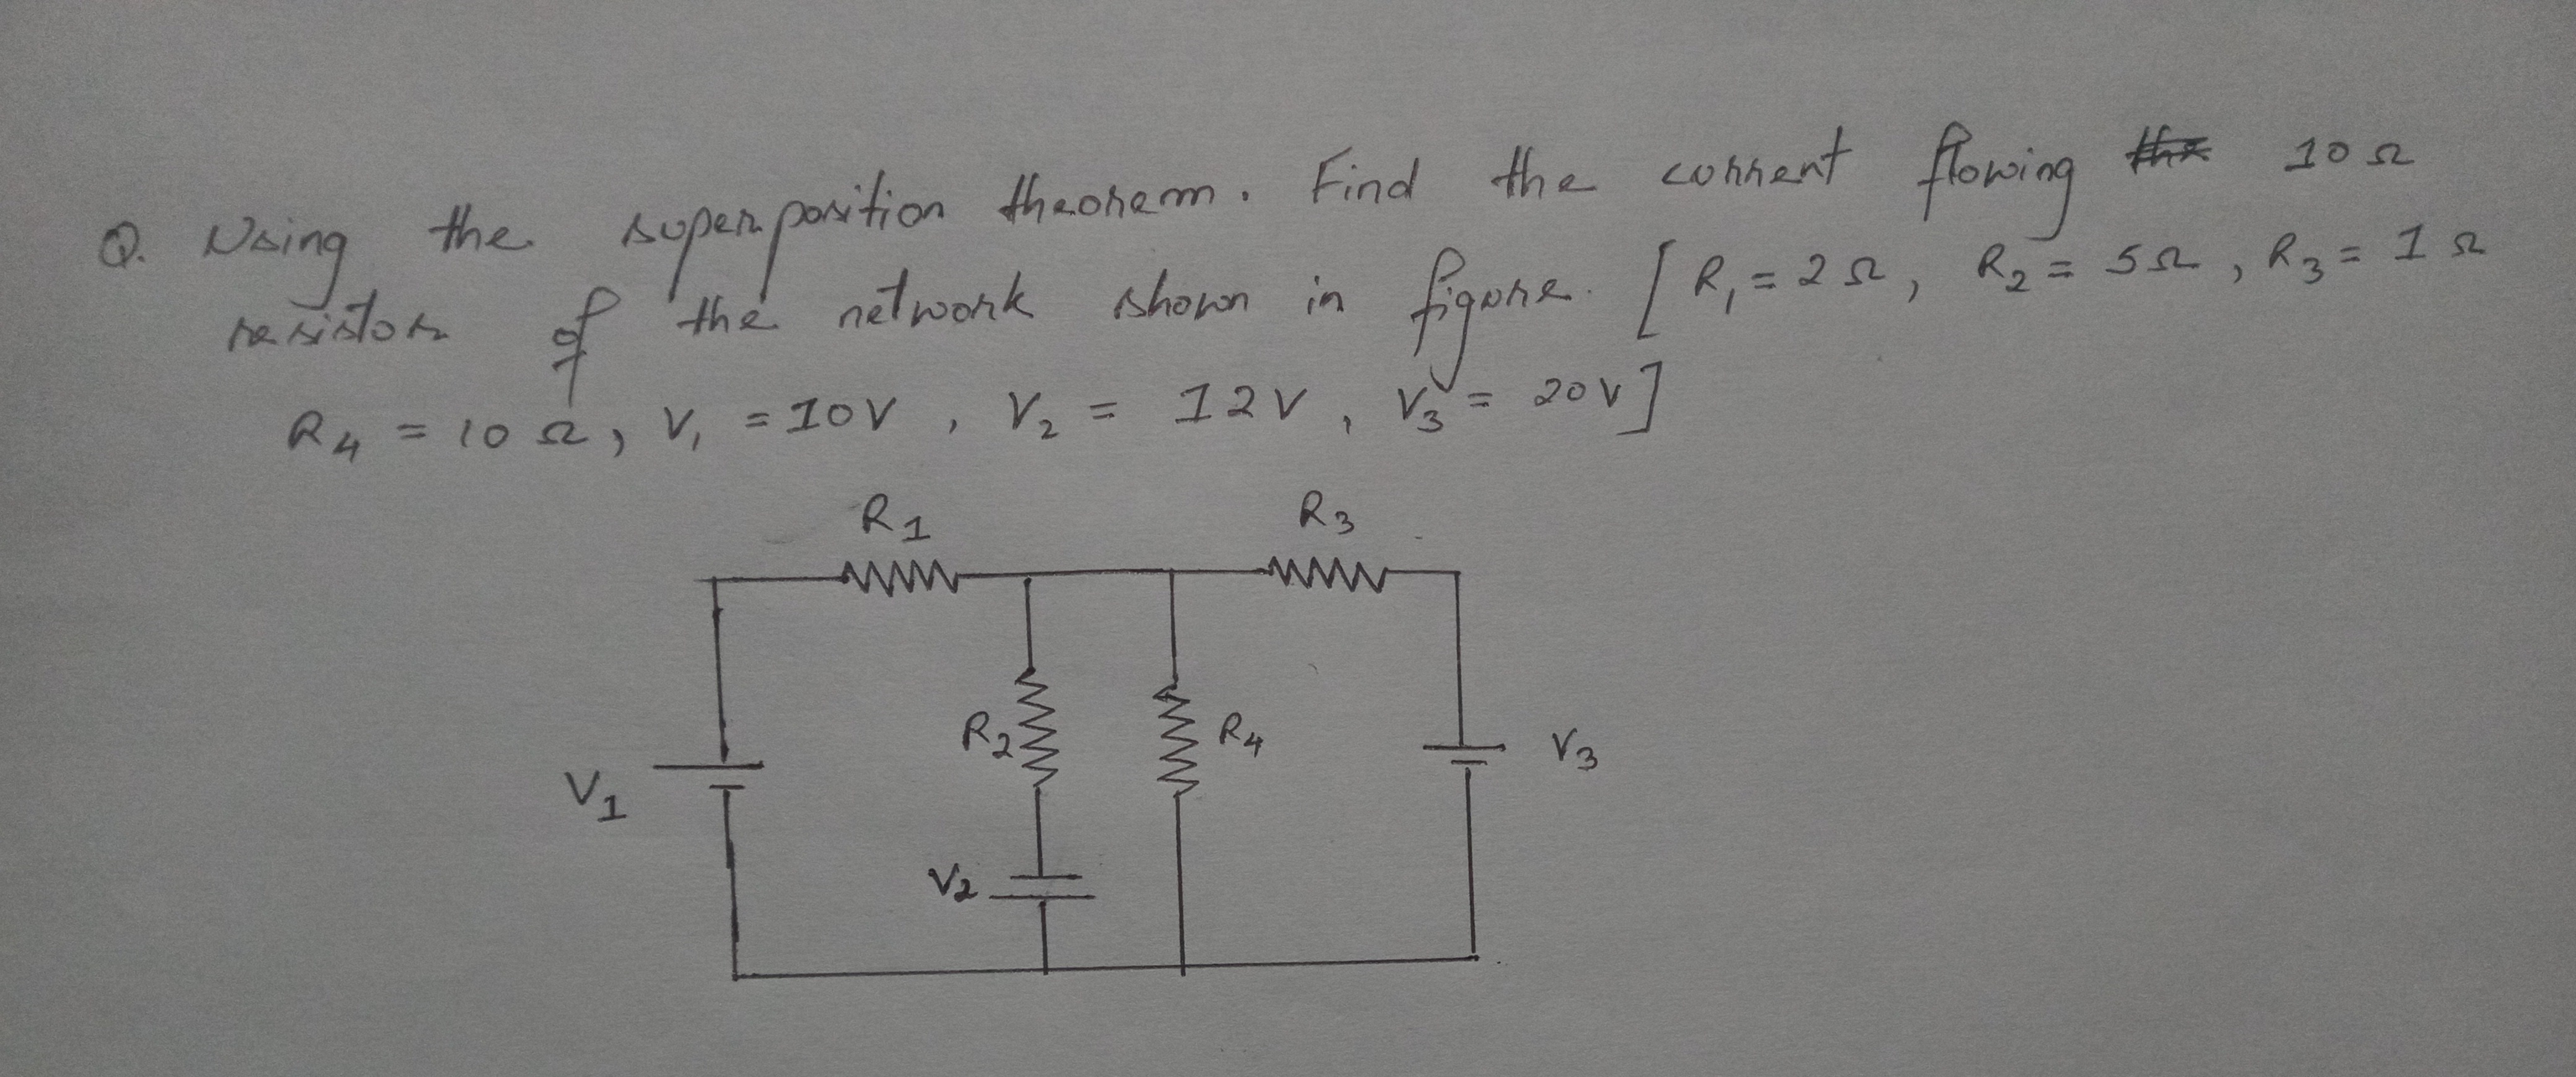 Q. Using the superposition theorem. Find the current flowing 10 Ω
resistor of the network shown in figure. [R₁ = 2 Ω, R₂ = 5 Ω, R₃ = 1 Ω
R₄ = 10 Ω, V₁ = 10V, V₂ = 12V, V₃ = 20V]
R1 R3
R2 R4 V3
V1
V2